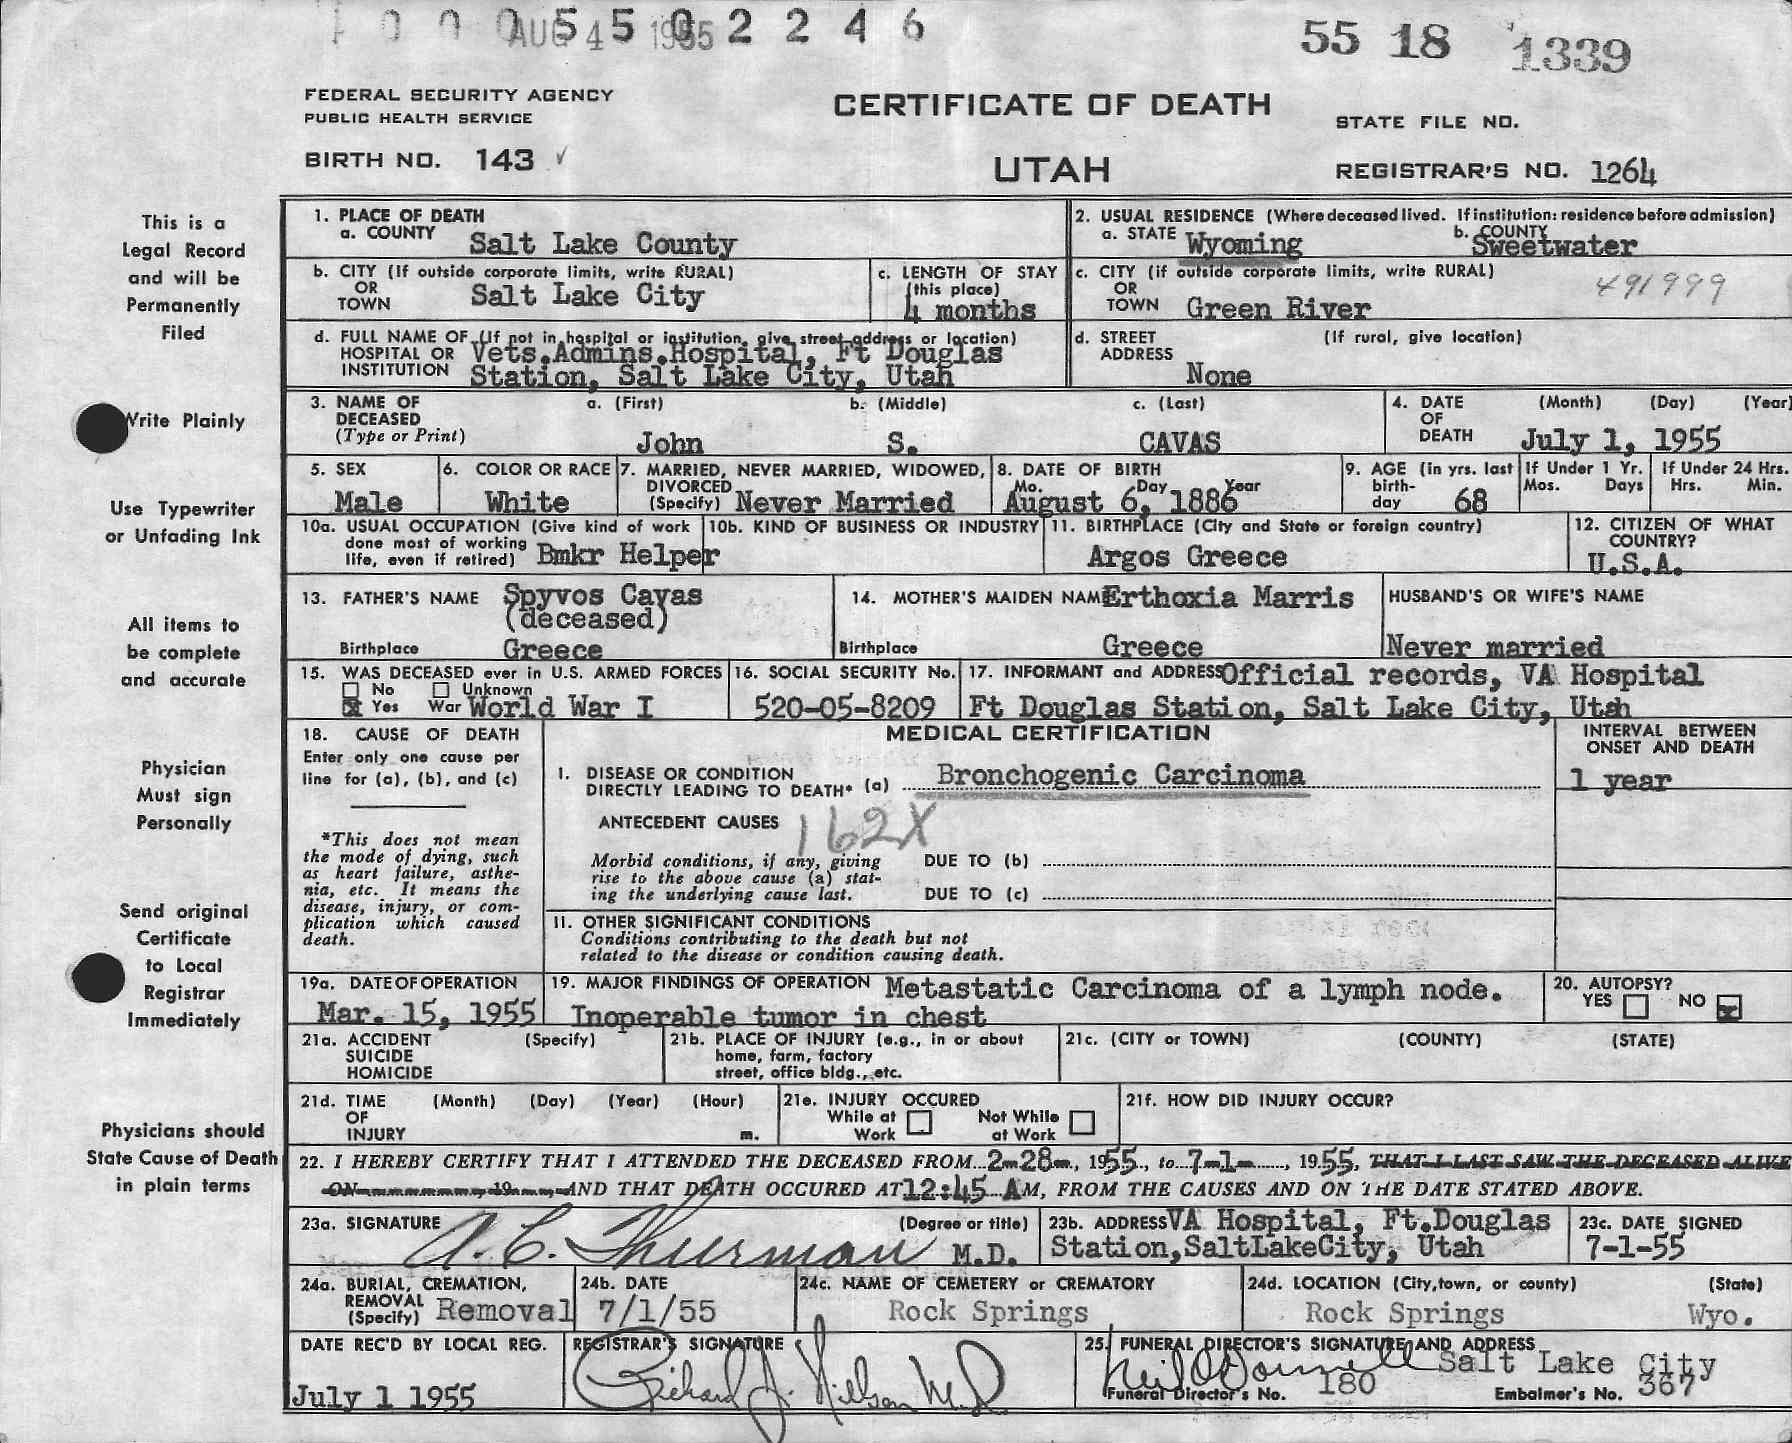 1 0 0 0 5 5 0 2 2 4 6
AUG 4 1955
55 18 1339
FEDERAL SECURITY AGENCY
PUBLIC HEALTH SERVICE
CERTIFICATE OF DEATH
STATE FILE NO.
BIRTH NO. 143 ✓
UTAH
REGISTRAR'S NO. 1264
This is a
Legal Record
and will be
Permanently
Filed
1. PLACE OF DEATH
a. COUNTY Salt Lake County
2. USUAL RESIDENCE (Where deceased lived. If institution: residence before admission)
a. STATE Wyoming b. COUNTY Sweetwater
b. CITY (If outside corporate limits, write RURAL)
OR
TOWN Salt Lake City
c. LENGTH OF STAY
(this place)
4 months
c. CITY (if outside corporate limits, write RURAL)
OR
TOWN Green River
491999
d. FULL NAME OF (If not in hospital or institution, give street address or location)
HOSPITAL OR Vets.Admins.Hospital, Ft Douglas
INSTITUTION Station, Salt Lake City, Utah
d. STREET (If rural, give location)
ADDRESS
None
Write Plainly
3. NAME OF a. (First) b. (Middle) c. (Last)
DECEASED
(Type or Print) John S. CAVAS
4. DATE (Month) (Day) (Year)
OF
DEATH July 1, 1955
Use Typewriter
or Unfading Ink
5. SEX
Male
6. COLOR OR RACE
White
7. MARRIED, NEVER MARRIED, WIDOWED,
DIVORCED
(Specify) Never Married
8. DATE OF BIRTH
Mo. Day Year
August 6, 1886
9. AGE (in yrs. last
birth-
day 68
If Under 1 Yr.
Mos. Days
If Under 24 Hrs.
Hrs. Min.
10a. USUAL OCCUPATION (Give kind of work
done most of working
life, even if retired) Bmkr Helper
10b. KIND OF BUSINESS OR INDUSTRY
11. BIRTHPLACE (City and State or foreign country)
Argos Greece
12. CITIZEN OF WHAT
COUNTRY?
U.S.A.
All items to
be complete
and accurate
13. FATHER'S NAME Spyvos Cavas
(deceased)
Birthplace Greece
14. MOTHER'S MAIDEN NAME Erthoxia Marris
Birthplace Greece
HUSBAND'S OR WIFE'S NAME
Never married
15. WAS DECEASED ever in U.S. ARMED FORCES
No Unknown
x Yes War World War I
16. SOCIAL SECURITY No.
520-05-8209
17. INFORMANT and ADDRESS Official records, VA Hospital
Ft Douglas Station, Salt Lake City, Utah
Physician
Must sign
Personally
18. CAUSE OF DEATH
Enter only one cause per
line for (a), (b), and (c)
*This does not mean
the mode of dying, such
as heart failure, asthe-
nia, etc. It means the
disease, injury, or com-
plication which caused
death.
MEDICAL CERTIFICATION
INTERVAL BETWEEN
ONSET AND DEATH
I. DISEASE OR CONDITION
DIRECTLY LEADING TO DEATH* (a) Bronchogenic Carcinoma
1 year
ANTECEDENT CAUSES 162X
Morbid conditions, if any, giving DUE TO (b)
rise to the above cause (a) stat-
ing the underlying cause last. DUE TO (c)
II. OTHER SIGNIFICANT CONDITIONS
Conditions contributing to the death but not
related to the disease or condition causing death.
Send original
Certificate
to Local
Registrar
Immediately
19a. DATE OF OPERATION
Mar. 15, 1955
19. MAJOR FINDINGS OF OPERATION Metastatic Carcinoma of a lymph node.
Inoperable tumor in chest
20. AUTOPSY?
YES NO x
21a. ACCIDENT (Specify)
SUICIDE
HOMICIDE
21b. PLACE OF INJURY (e.g., in or about
home, farm, factory
street, office bldg., etc.
21c. (CITY or TOWN) (COUNTY) (STATE)
21d. TIME (Month) (Day) (Year) (Hour)
OF
INJURY m.
21e. INJURY OCCURED
While at Not While
Work at Work
21f. HOW DID INJURY OCCUR?
Physicians should
State Cause of Death
in plain terms
22. I HEREBY CERTIFY THAT I ATTENDED THE DECEASED FROM 2-28-, 1955, to 7-1-, 1955, THAT I LAST SAW THE DECEASED ALIVE
ON , 19 AND THAT DEATH OCCURED AT 12:45 AM, FROM THE CAUSES AND ON THE DATE STATED ABOVE.
23a. SIGNATURE (Degree or title)
A. C. Thurman M.D.
23b. ADDRESS VA Hospital, Ft.Douglas
Station,SaltLakeCity, Utah
23c. DATE SIGNED
7-1-55
24a. BURIAL, CREMATION,
REMOVAL
(Specify) Removal
24b. DATE
7/1/55
24c. NAME OF CEMETERY or CREMATORY
Rock Springs
24d. LOCATION (City, town, or county) (State)
Rock Springs Wyo.
DATE REC'D BY LOCAL REG.
July 1 1955
REGISTRAR'S SIGNATURE
Richard J. Nilson M.D.
25. FUNERAL DIRECTOR'S SIGNATURE AND ADDRESS
Neil O'Donnell Salt Lake City
Funeral Director's No. 180 Embalmer's No. 367